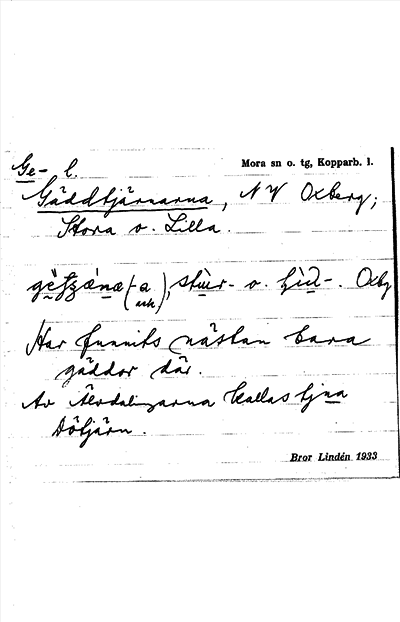 Ge- l.
Mora sn o. tg, Kopparb. l.
Gäddtjärnarna, NV Oxberg;
Stora o. Lilla.
-a, och o. Oxbg
Har funnits nästan bara
gäddor där.
Av Älvdalingarna kallas tjna
Dötjärn.
Bror Lindén 1933